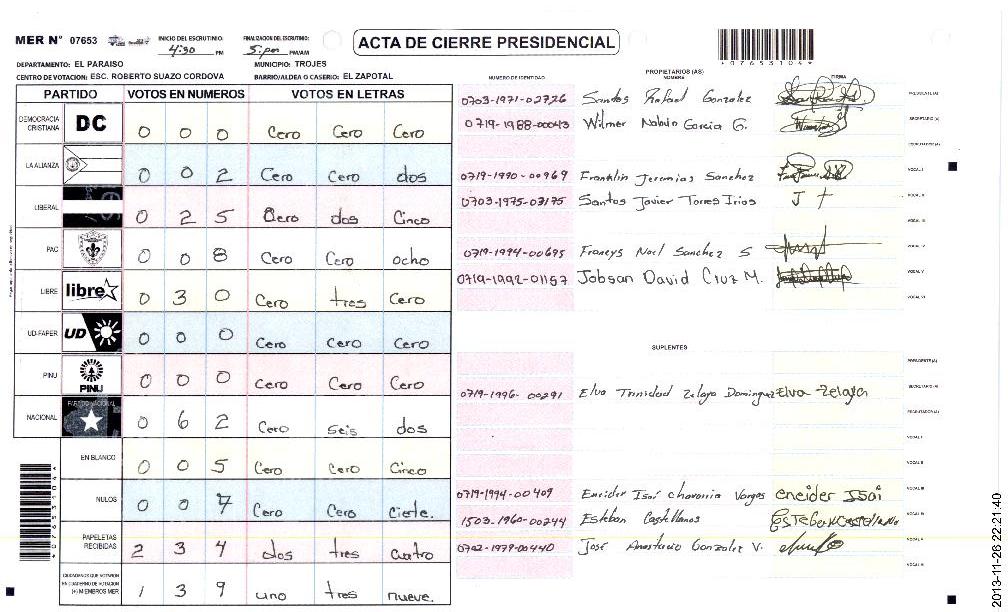 MER N° 07653
INICIO DEL ESCRUTINIO: 4:30 PM
FINALIZACION DEL ESCRUTINIO: 5:pm PM/AM
ACTA DE CIERRE PRESIDENCIAL
4076531044
DEPARTAMENTO: EL PARAISO
MUNICIPIO: TROJES
CENTRO DE VOTACION: ESC. ROBERTO SUAZO CORDOVA
BARRIO/ALDEA O CASERIO: EL ZAPOTAL
PARTIDO VOTOS EN NUMEROS VOTOS EN LETRAS
DEMOCRACIA CRISTIANA DC 0 0 0 Cero Cero Cero
LA ALIANZA 0 0 2 Cero Cero dos
LIBERAL 0 2 5 Cero dos Cinco
PAC 0 0 8 Cero Cero ocho
LIBRE libre 0 3 0 Cero tres Cero
UD-FAPER UD 0 0 0 Cero Cero Cero
PINU PINU 0 0 0 Cero Cero Cero
NACIONAL PARTIDO NACIONAL 0 6 2 Cero seis dos
EN BLANCO 0 0 5 Cero Cero Cinco
NULOS 0 0 7 Cero Cero Ciete.
PAPELETAS RECIBIDAS 2 3 4 dos tres cuatro
CIUDADANOS QUE VOTARON EN CUADERNO DE VOTACION (+) MIEMBROS MER 1 3 9 uno tres nueve.
4076531044
NUMERO DE IDENTIDAD
PROPIETARIOS (AS)
NOMBRE
FIRMA
0703-1971-02726 Santos Rafael Gonzalez PRESIDENTE (A)
0719-1988-00043 Wilmer Nahún Garcia G. SECRETARIO (A)
ESCRUTADOR (A)
0719-1990-00969 Franklin Jeremias Sanchez VOCAL I
0703-1975-03175 Santos Javier Torres Irias J T VOCAL II
VOCAL III
0719-1994-00695 Francys Noel Sanchez S VOCAL IV
0719-1992-01157 Jobsan David Cruz M. VOCAL V
VOCAL VI
SUPLENTES
PRESIDENTE (A)
0719-1996-00291 Elva Trinidad Zelaya Dominguez Elva Zelaya SECRETARIO (A)
ESCRUTADOR (A)
VOCAL I
VOCAL II
0719-1994-00409 Eneider Isaí chavarria Vargas eneider Isai VOCAL III
1503-1960-00244 Esteban Castellanos Esteban Castellano VOCAL IV
0702-1979-00440 José Anastacio Gonzalez V. VOCAL V
VOCAL VI
2013-11-26 22:21:40